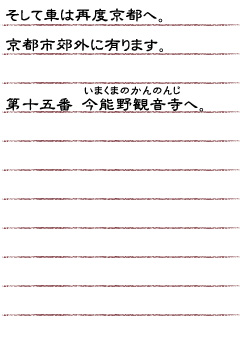 そして車は再度京都へ。
京都市郊外に有ります。
いまくまのかんのんじ
第十五番 今能野観音寺へ。